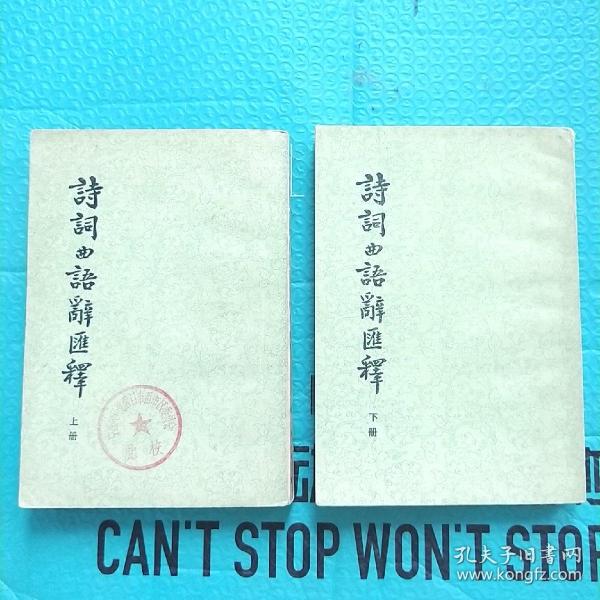 詩詞曲語辭匯釋
上册
詩詞曲語辭匯釋
下册
CAN'T STOP WON'T STOP
孔夫子旧书网
www.kongfz.com